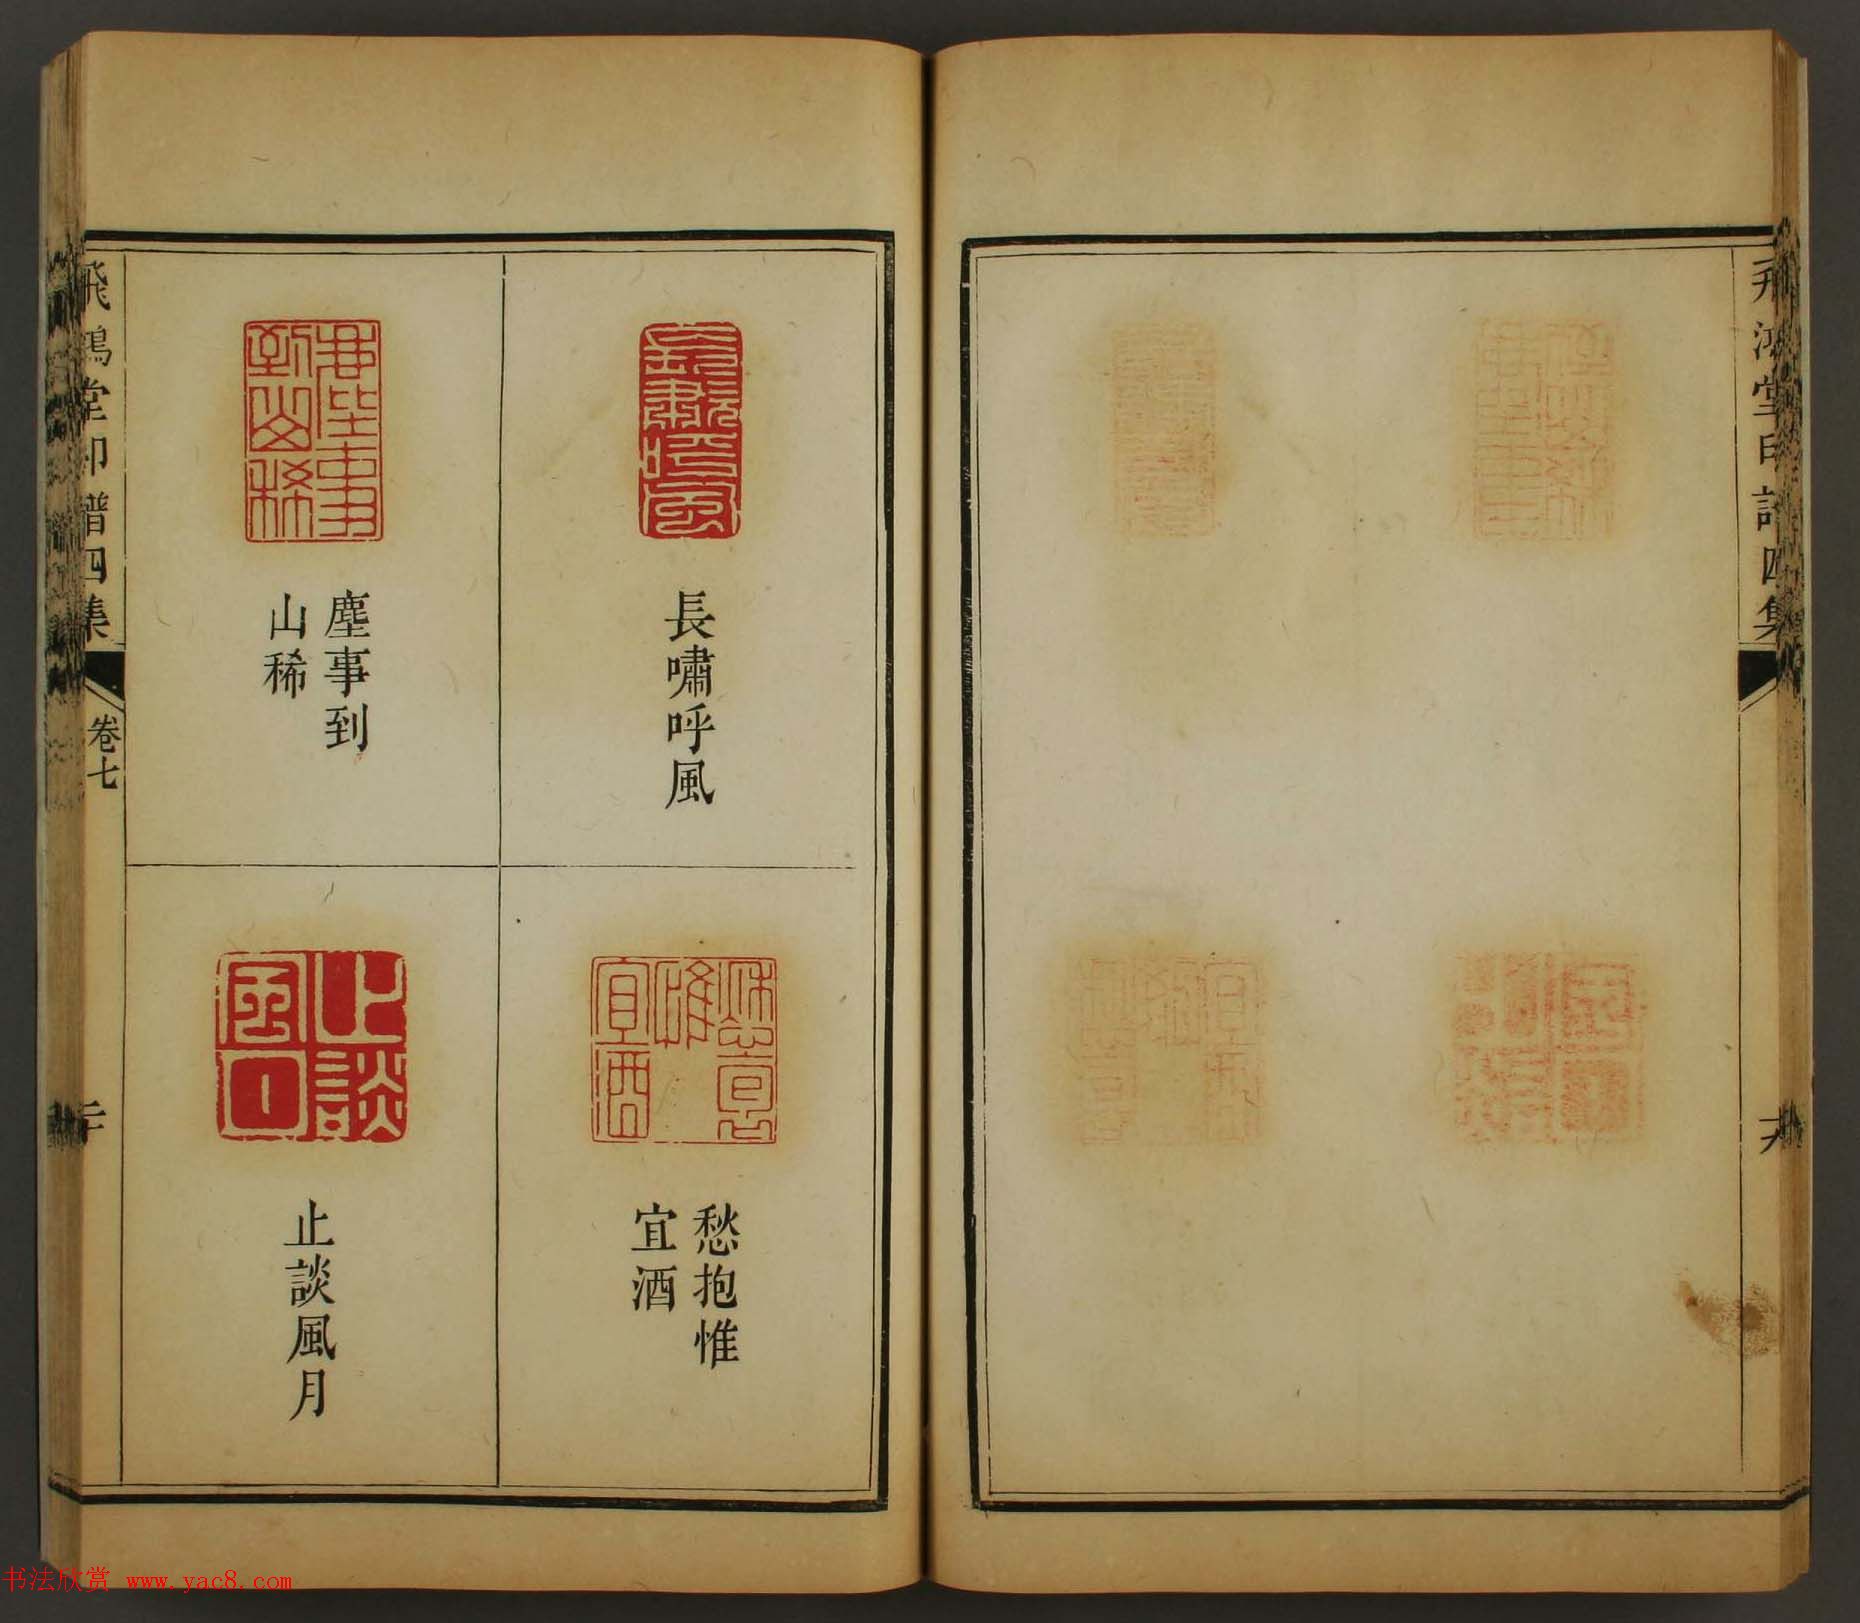 飛鴻堂印譜四集
十九
長嘯呼風
塵事到
山稀
愁抱惟
宜酒
止談風月
飛鴻堂印譜四集
卷七
二十
书法欣赏 www.yac8.com